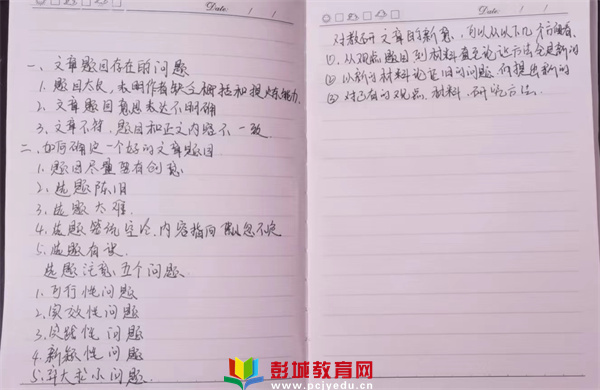 Date / /
一、文章题目存在的问题
1. 题目太长，表明作者缺乏概括和提炼能力.
2. 文章题目意思表达不明确
3. 文章不符，题目和正文内容不一致.
二、如何确定一个好的文章题目
1. 题目尽量要有创意
2. 选题陈旧
3. 选题太难.
4. 选题笼统空泛.内容指向
5. 选题有误.
选题注意：五个问题.
1. 可行性问题
2. 实效性问题
3. 实践性问题
4. 新颖性问题
5. 弃大求小问题.
Date / /
对教研文章的新意，可以从以下几个方面看.
①. 从观点题目到材料直至论述方法全是新的
② 以新的材料论证旧的问题.
③ 对已有的观点、材料、研究方法.
彭城教育网
www.pcjyedu.cn